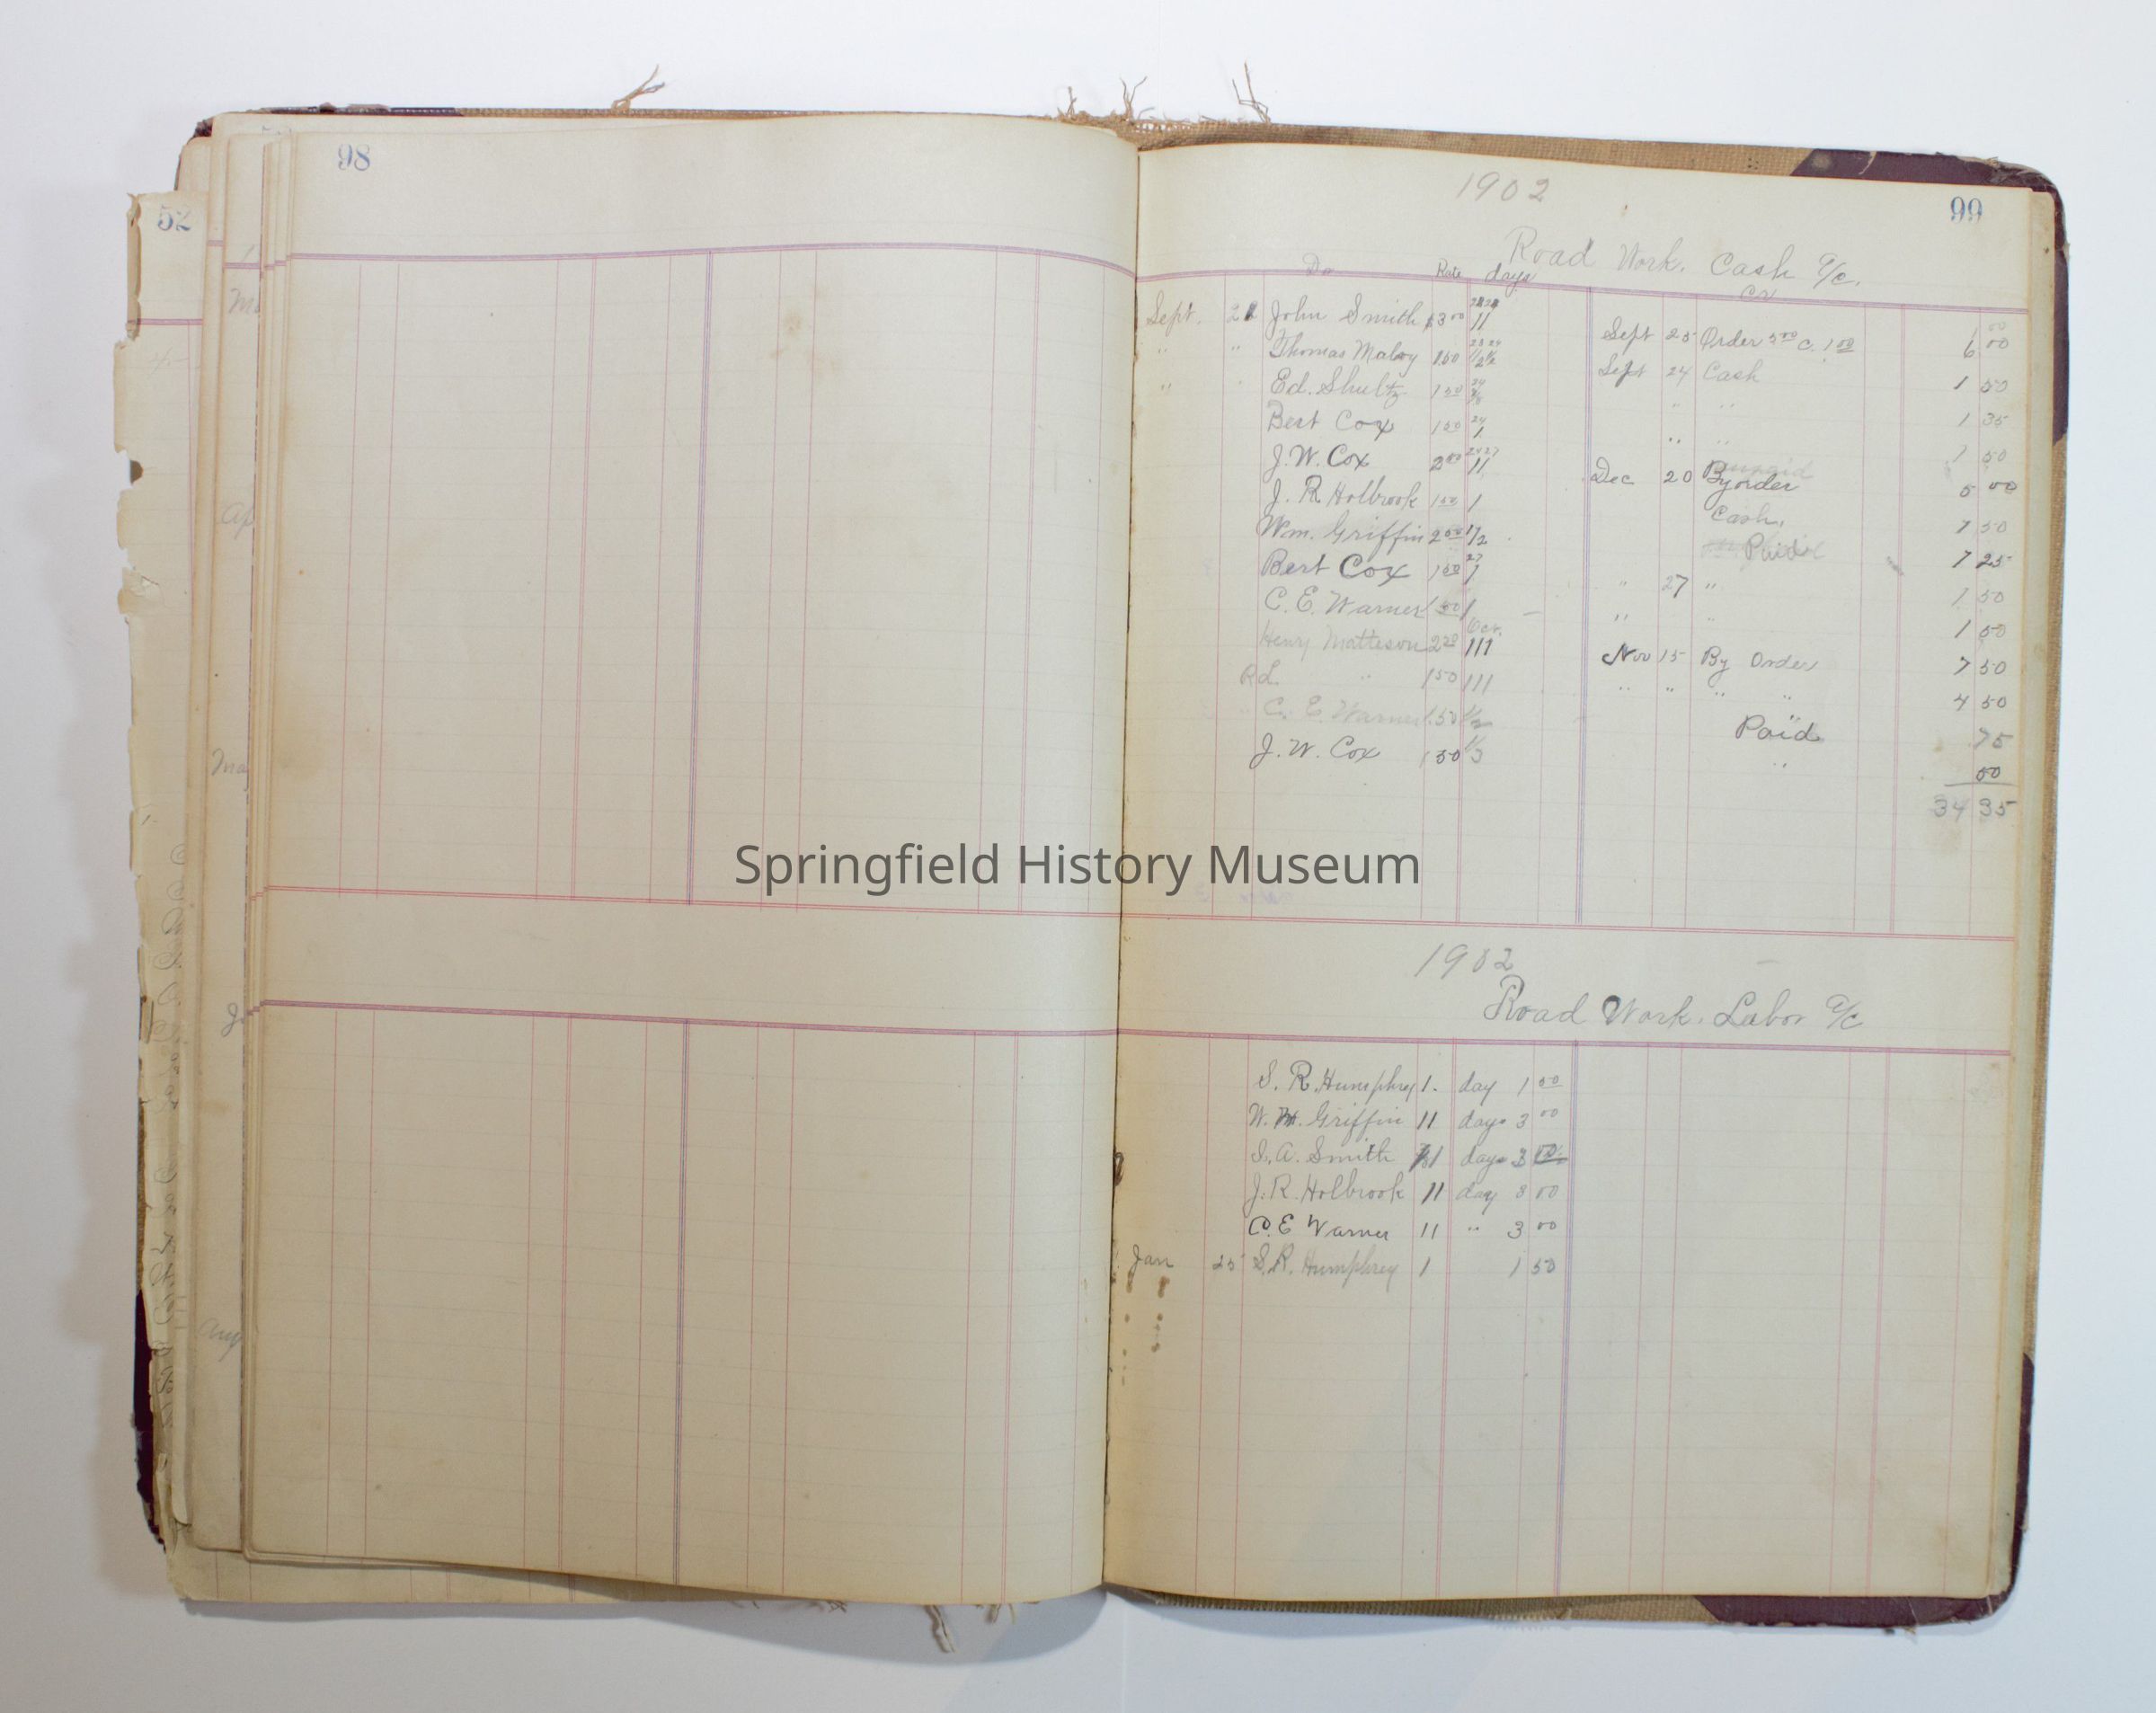 98
52
1902
99
Road Work. Cash a/c.
Rate days
Cr
Sept. John Smith $3 00 11 Sept 25 Order 5 00 c. 1 00 6 00
" " Thomas Maloy 1.50 Sept 24 Cash 1 50
" Ed. Shultz 1 50 24 " " 1 35
Bert Cox 1 50 24 1 " " 1 50
J. W. Cox 2 50 24 27 11 Dec 20 By order 5 00
J. R. Holbrook 1 50 1 Cash, 1 50
Wm. Griffin 2 50 1/2 Paid 1 25
Bert Cox 1 50 27 1 " 27 " 1 50
C. E. Warner 1 50 1 " " 1 50
Henry Matteson 2 50 Oct. 111 Nov 15 By Order 7 50
Rd " 1 50 111 " " " " 4 50
C. E. Warner 1.50 1/2 Paid 75
J. W. Cox 1 50 1/3 " 50
34 35
Springfield History Museum
1902
Road Work. Labor a/c
S. R. Humphrey 1. day 1 50
W. M. Griffin 11 days 3 00
S. A. Smith days 3 00
J. R. Holbrook 11 day 3 00
C. E Warner 11 " 3 00
Jan 25 S. R. Humphrey 1 1 50